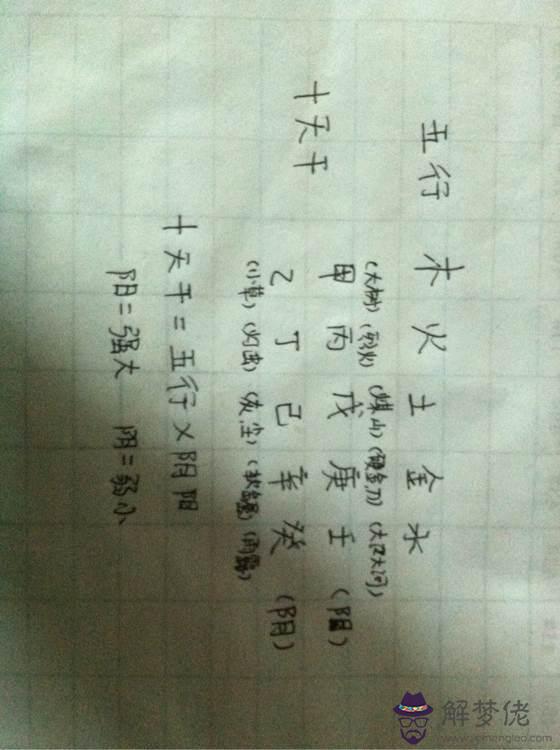 五行 木 火 土 金 水
(大树) (烈火) (煤山) (硬金刀) (大江大河)
十天干 甲 丙 戊 庚 壬 (阳)
乙 丁 己 辛 癸 (阴)
(小草) (灰尘) (雨露)
十天干=五行×阴阳
阳=强大 阴=弱小
解梦佬
www.jiemenglao.com